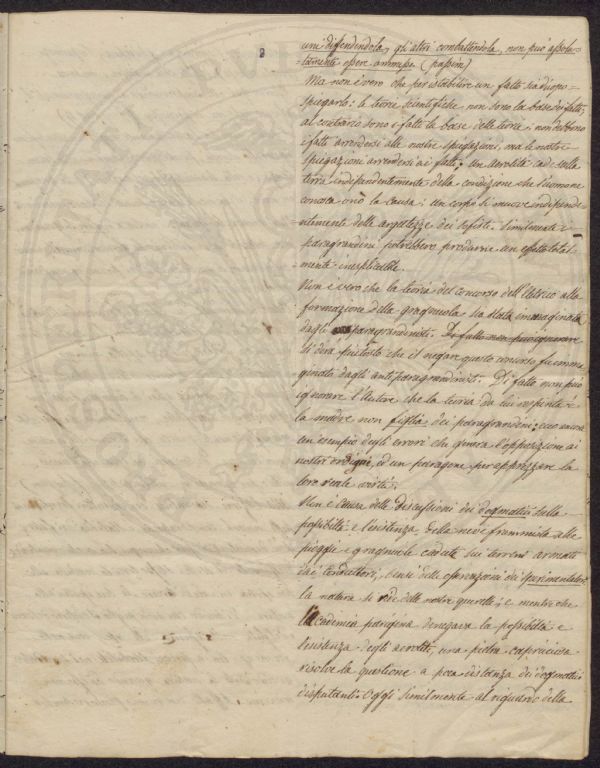 uni difendendola, gli altri combattendola, non può assolu-
-tamente essere ammessa (passim)
Ma non è vero che per istabilire un fatto sia d'uopo
spiegarlo: le teorie scientifiche non sono la base dei fatti,
al contrario sono i fatti la base delle teorie: non debbono
i fatti arrendersi alle nostre spiegazioni, ma le nostre
spiegazioni arrendersi ai fatti: un aerolite cade sulla
terra indipendentemente della condizione che l'uomo ne
conosca o nò la causa: un corpo si muove indipend-
entemente delle arguzie dei sofisti. Similmente i
paragrandini potrebbero produrre un effetto total-
-mente inesplicabile.
Non è vero che la teoria del concorso dell'Elettrico alla
formazione della gragnuola sia stata immaginata
dagli paragrandinisti. Di fatto non può ignorare
si dirà piuttosto che il negare questo concorso fu imma
ginato dagli antiparagrandinisti. Di fatto non può
ignorare l'Autore che la teoria da lui respinta è
la madre non figlia dei paragrandini; ecco ancora
un'esempio degli errori che genera l'opposizione ai
nostri ordigni, ed un paragone per apprezzare la
loro reale virtù.
Non è causa delle discussioni dei dogmatici sulla
possibiltà e l'esistenza della neve frammista alle
pioggie e gragnuole cadute sui terreni armati
dai conduttori, bensì delle operazioni dei sperimentatori
la natura si ride delle nostre querelle; e mentre che
l'Accademia parigina denegava la possibiltà e
l'esistenza degli aeroliti, una pietra capricciosa
risolve la questione a poca distanza dei dogmatici
disputanti. Oggi similmente al riguardo della